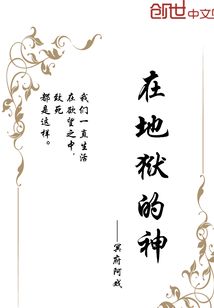 创世中文
在地狱的神
——冥府阿戏
我们一直生活
在欲望之中,
致死
都是这样。